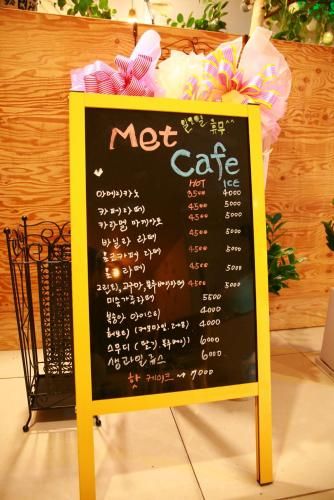 Met 일요일 휴무^^
Cafe
HOT ICE
아메리카노 3500 4000
카페라떼 4500 5000
카라멜 마끼아또 4500 5000
바닐라 라떼 4500 5000
라떼 4500 5000
라떼 4500 5000
그린티, 고구마, 4500 5000
미숫가루라떼 5500
복숭아 아이스티 4000
허브티 (캐모마일, 4000
스무디 (딸기, 6000
생과일쥬스 6000
핫 케이크 ~ 7000